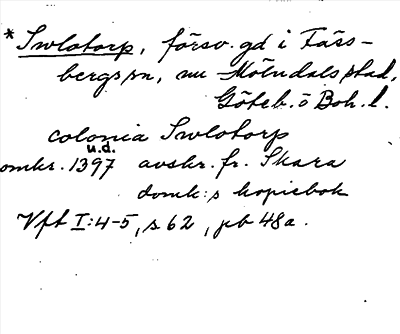 *Swlotorp, försv. gd i Fäss-
bergs sn, nu Mölndals stad,
Göteb. o Boh. l.
colonia Swlotorp
u.d.
omkr. 1397 avskr. fr. Skara
domk:s kopiebok
Vft I:4-5, s 62, pb 48a.